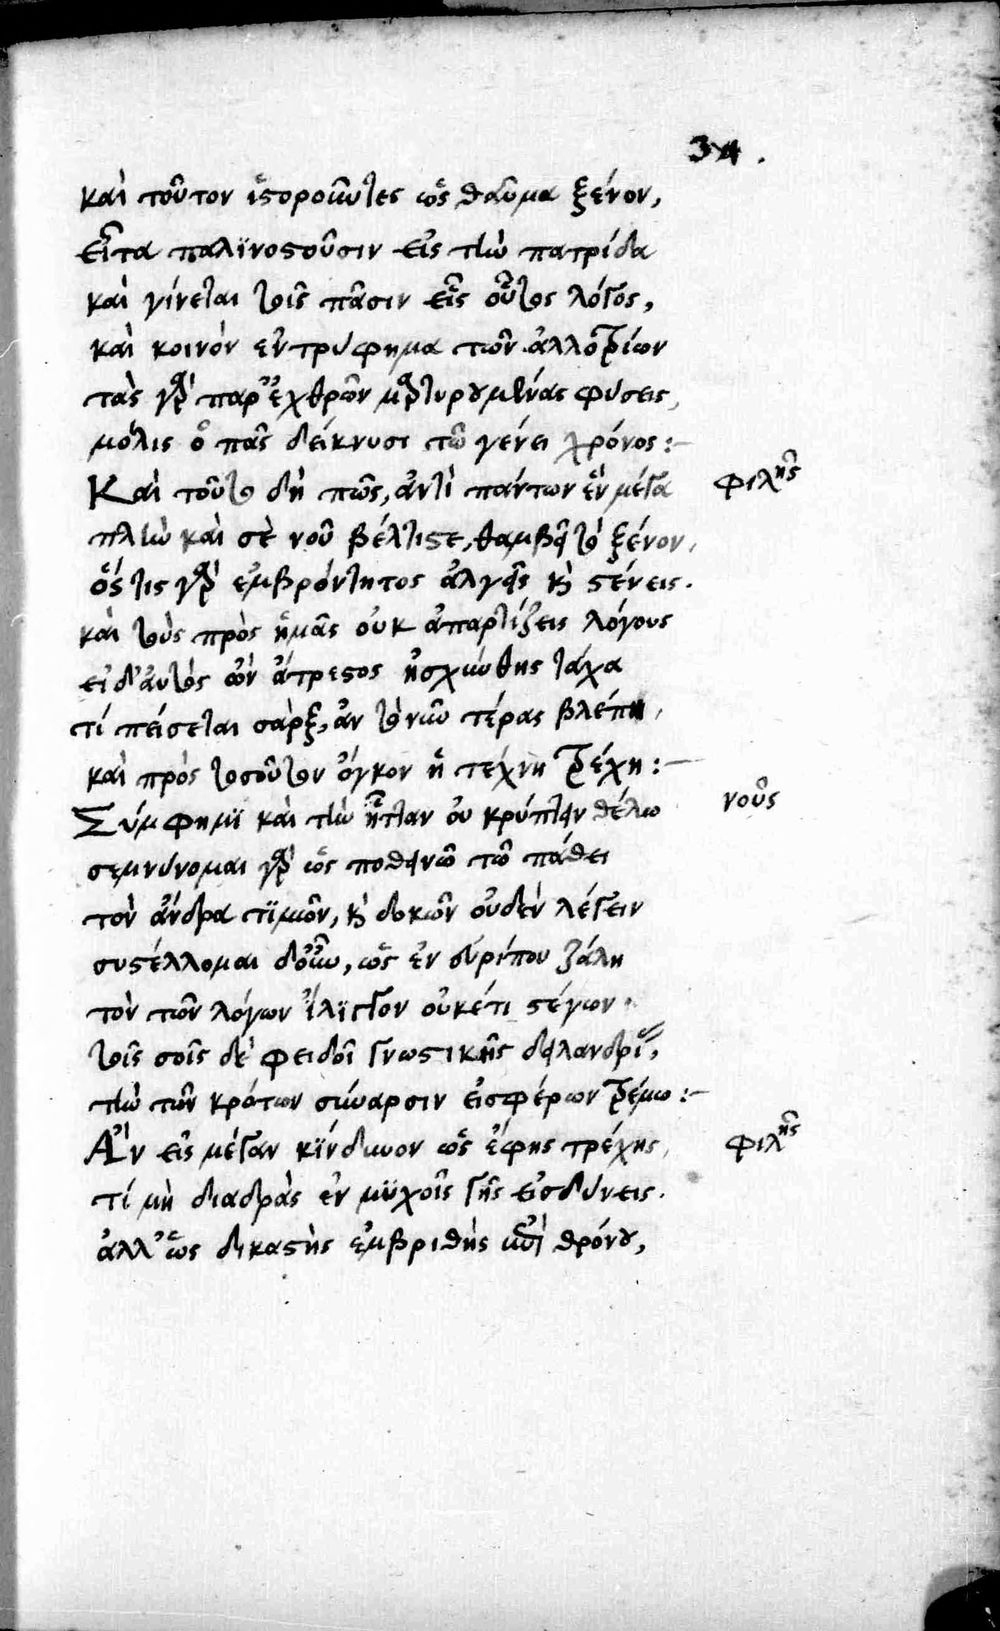 34.
καὶ τοῦτον ἱστοροῦντες ὡς θαῦμα ξένον,
εἶτα παλϊνοστοῦσιν εἰς τὴν πατρίδα
καὶ γίνεται τοῖς πᾶσιν εἷς οὗτος λόγος,
καὶ κοινὸν ἐντρύφημα τῶν ἀλλοτρίων
τὰς γὰρ παρ' ἐχθρῶν μαρτυρουμένας φύσεις,
μόλις ὁ πᾶς δείκνυσι τῶ γένει χρόνος:
Καὶ τοῦτο δὴ πῶς, ἀντὶ πάντων ἓν μέγα φιλῆς
πλὴν καὶ σὲ νοῦ βέλτιστε, θαμβεῖ τὸ ξένον,
ὅς τις γὰρ ἐμβρόντητος ἀλγεῖς καὶ στένεις.
καὶ τοὺς πρὸς ἡμᾶς οὐκ ἀπαρτίζεις λόγους
εἰ δ' αὐτὸς ὢν ἄτρεστος ἠσχύνθης τάχα
τί πείσεται σάρξ, ἂν τὸ νῦν τέρας βλέπη,
καὶ πρὸς τοσοῦτον ὄγκον ἡ τέχνη τρέχη:
Σύμφημϊ καὶ τὴν ἧτταν οὐ κρύπτειν θέλω νοῦς
σεμνύνομαι γὰρ ὡς ποθεινῶ τῶ πάθει
τὸν ἄνδρα τϊμῶν, καὶ δοκῶν οὐδὲν λέγειν
συστέλλομαι γοῦν, ὡς ἐν εὐρίπου ζάλη
τὸν τῶν λόγων ἴλϊγγον οὐκέτι στέγων
τοῖς σοῖς δὲ φειδοῖ γνωστικῆς
τὴν τῶν κρότων σύναρσιν εἰσφέρων τρέμω:
Ἂν εἰς μέγαν κίνδυνον ὡς ἔφης τρέχης, φιλῆς
τί μὴ διαδρὰς ἐν μϋχοῖς γῆς εἰσδύνεις.
ἀλλ' ὡς δικαστὴς ἐμβριθὴς θρόνου,